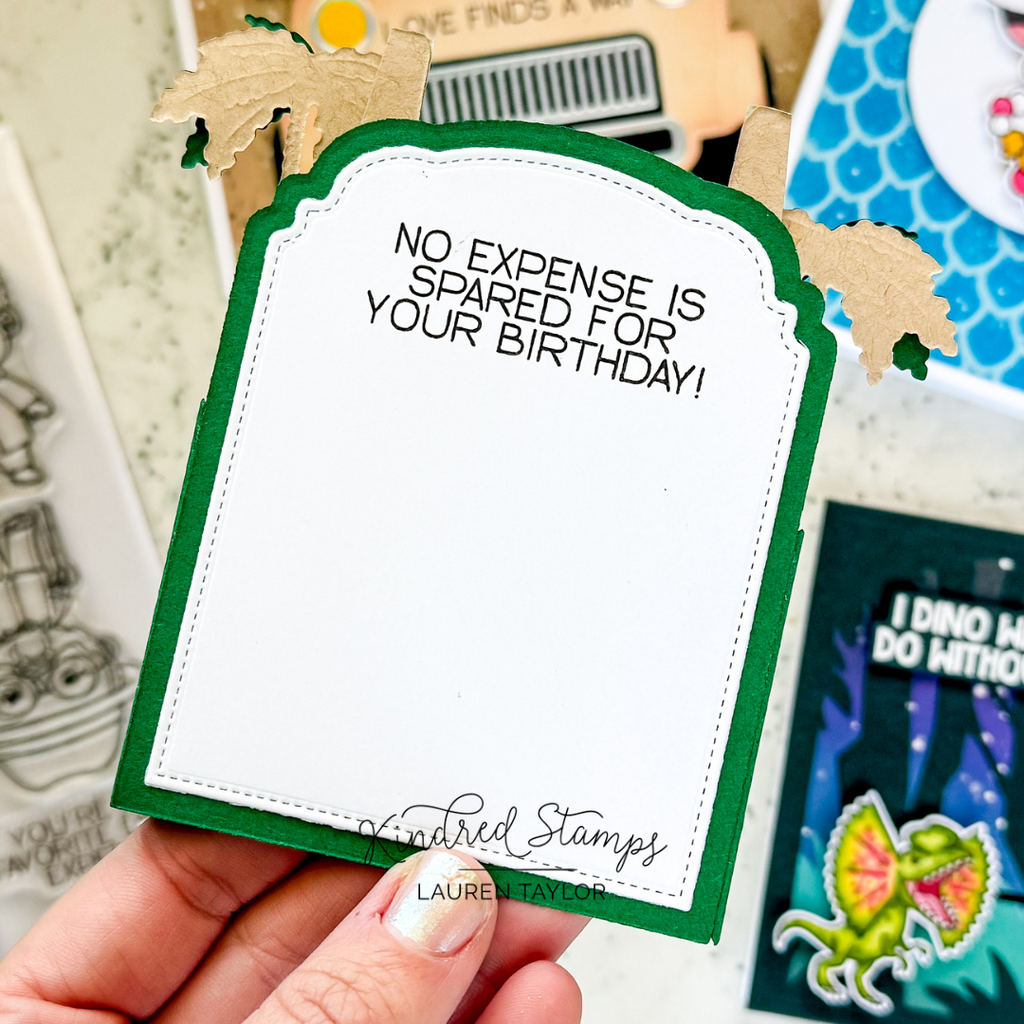 LOVE FINDS A WAY
NO EXPENSE IS
SPARED FOR
YOUR BIRTHDAY!
I DINO
DO
YOU'RE
Kindred Stamps
LAUREN TAYLOR